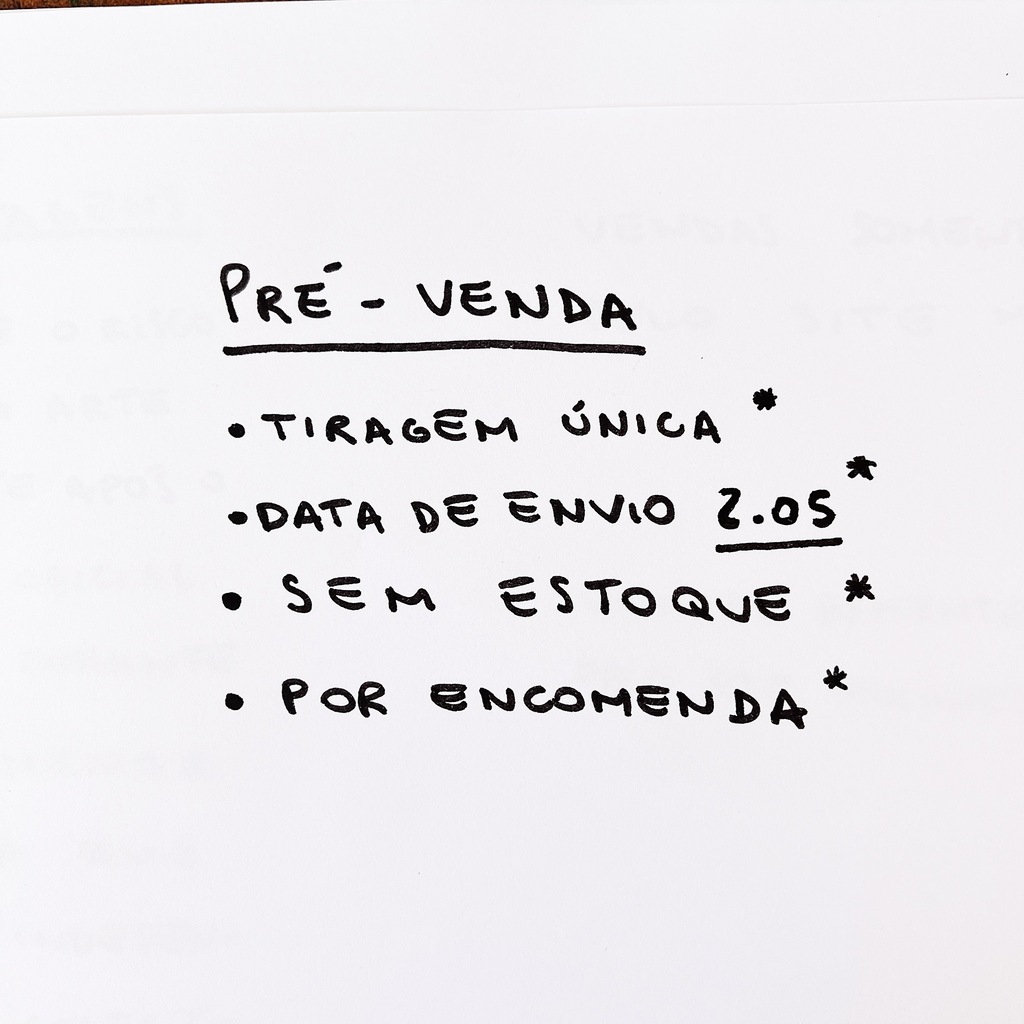 PRÉ - VENDA
• TIRAGEM ÚNICA *
• DATA DE ENVIO 2.05 *
• SEM ESTOQUE *
• POR ENCOMENDA *